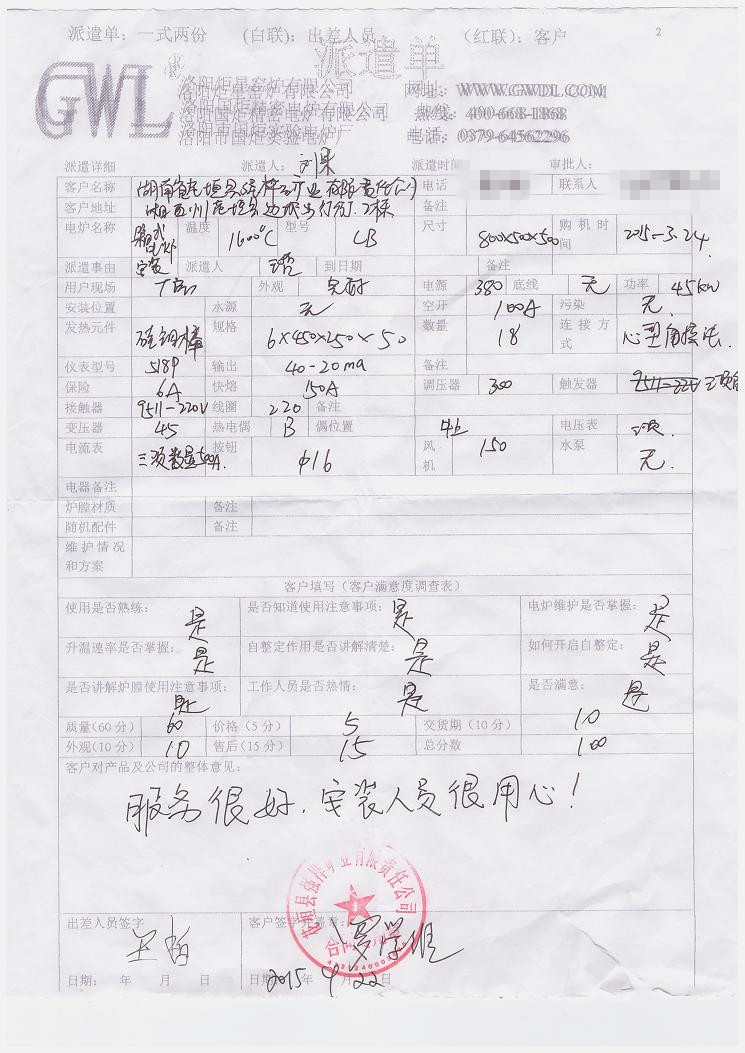 派遣单：一式两份 （白联）：出差人员 （红联）：客户 2
派遣单
GWL®
洛阳炬星窑炉有限公司 网址：WWW.GWDL.COM
洛阳国炬精密电炉有限公司 热线：400-668-1868
洛阳市国炬实验电炉厂 电话：0379-64562296
派遣详细 派遣人： 派遣时间 审批人：
客户名称 电话 联系人
客户地址 备注
电炉名称 箱式电炉 温度 1600℃ 型号 LB 尺寸 800×500×500 购机时间 2015-3.24.
派遣事由 安装 派遣人 到日期 备注
用户现场 厂房 外观 完好 电源 380 底线 无 功率 45kw
安装位置 水源 无 空开 100A 污染 无.
发热元件 硅钼棒 规格 6×450×250×50 数量 18 连接方式
仪表型号 518P 输出 40-20ma 备注
保险 6A 快熔 150A 调压器 300 触发器
接触器 9511-220V 线圈 220 备注
变压器 45 热电偶 B 偶位置 电压表
电流表 按钮 φ16 风机 150 水泵 无.
电器备注
炉膛材质 备注
随机配件 备注
维护情况和方案
客户填写（客户满意度调查表）
使用是否熟练： 是 是否知道使用注意事项： 是 电炉维护是否掌握： 是
升温速率是否掌握： 是 自整定作用是否讲解清楚： 是 如何开启自整定： 是
是否讲解炉膛使用注意事项： 是 工作人员是否热情： 是 是否满意： 是
质量(60分) 60 价格（5分） 5 交货期（10分） 10
外观(10分) 10 售后(15分) 15 总分数 100
客户对产品及公司的整体意见：
服务很好，安装人员很用心！
花垣县强桦矿业有限责任公司
出差人员签字 客户签字并盖章：
日期： 年 月 日 日期：2015年4月22日